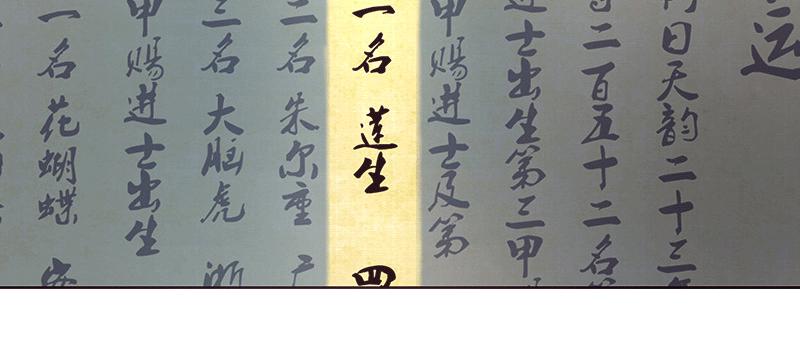 远
日天韵二十三年
二百五十二名
进士出生第三甲
甲赐进士及第
一名 蓮生 四
二名 朱尔重
三名 大脑虎 浙
甲赐进士出生
一名 花蝴蝶 安